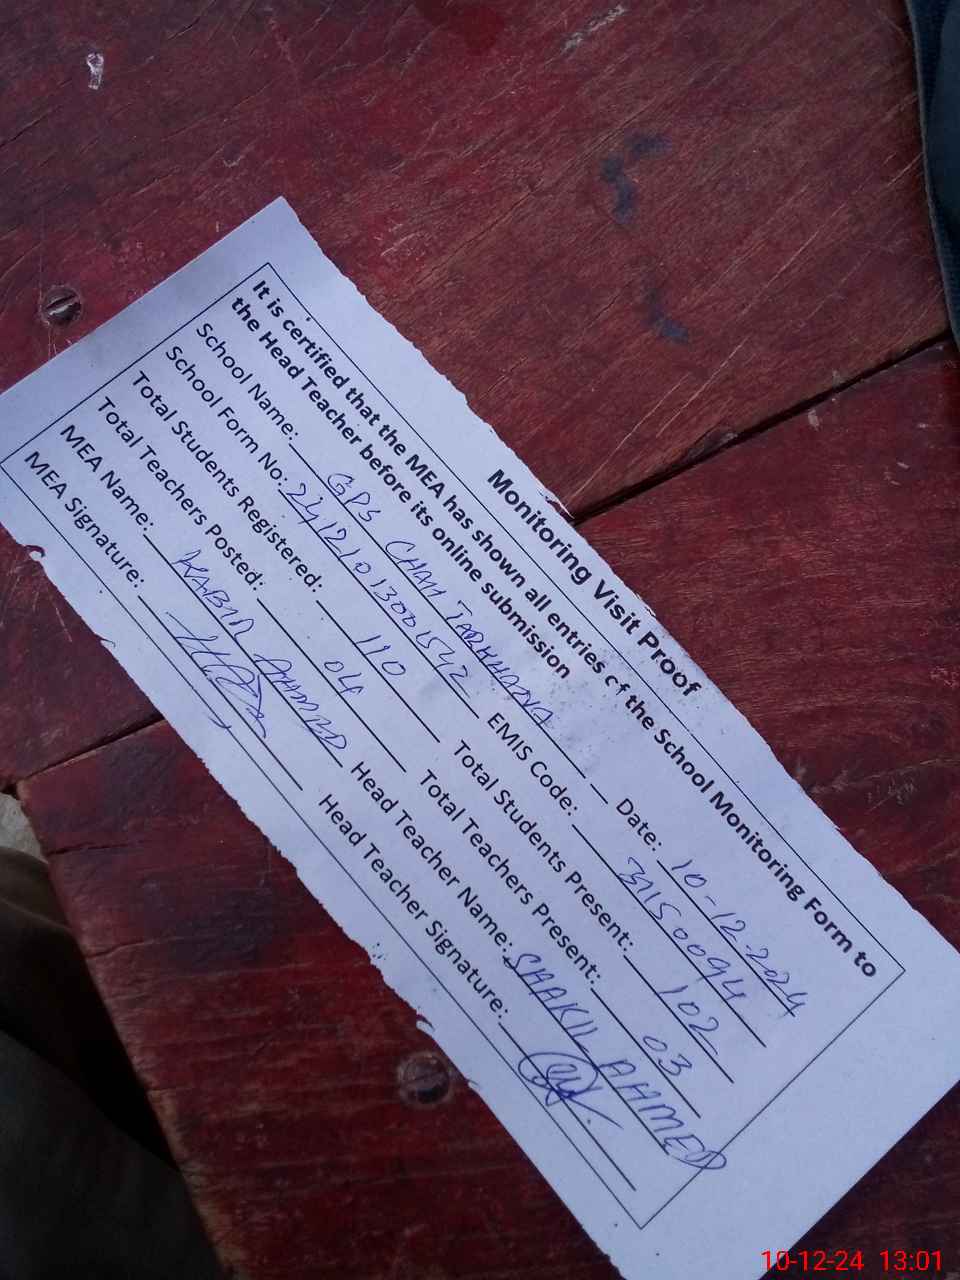 Monitoring Visit Proof
It is certified that the MEA has shown all entries of the School Monitoring Form to
the Head Teacher before its online submission
School Name: GPS CHAH TARKHANA Date: 10-12-2024
School Form No: 24121013001542 EMIS Code: 31150094
Total Students Registered: 110 Total Students Present: 102
Total Teachers Posted: 04 Total Teachers Present: 03
MEA Name: KABIR AHMED Head Teacher Name: SHAKIL AHMED
MEA Signature: Head Teacher Signature:
10-12-24 13:01